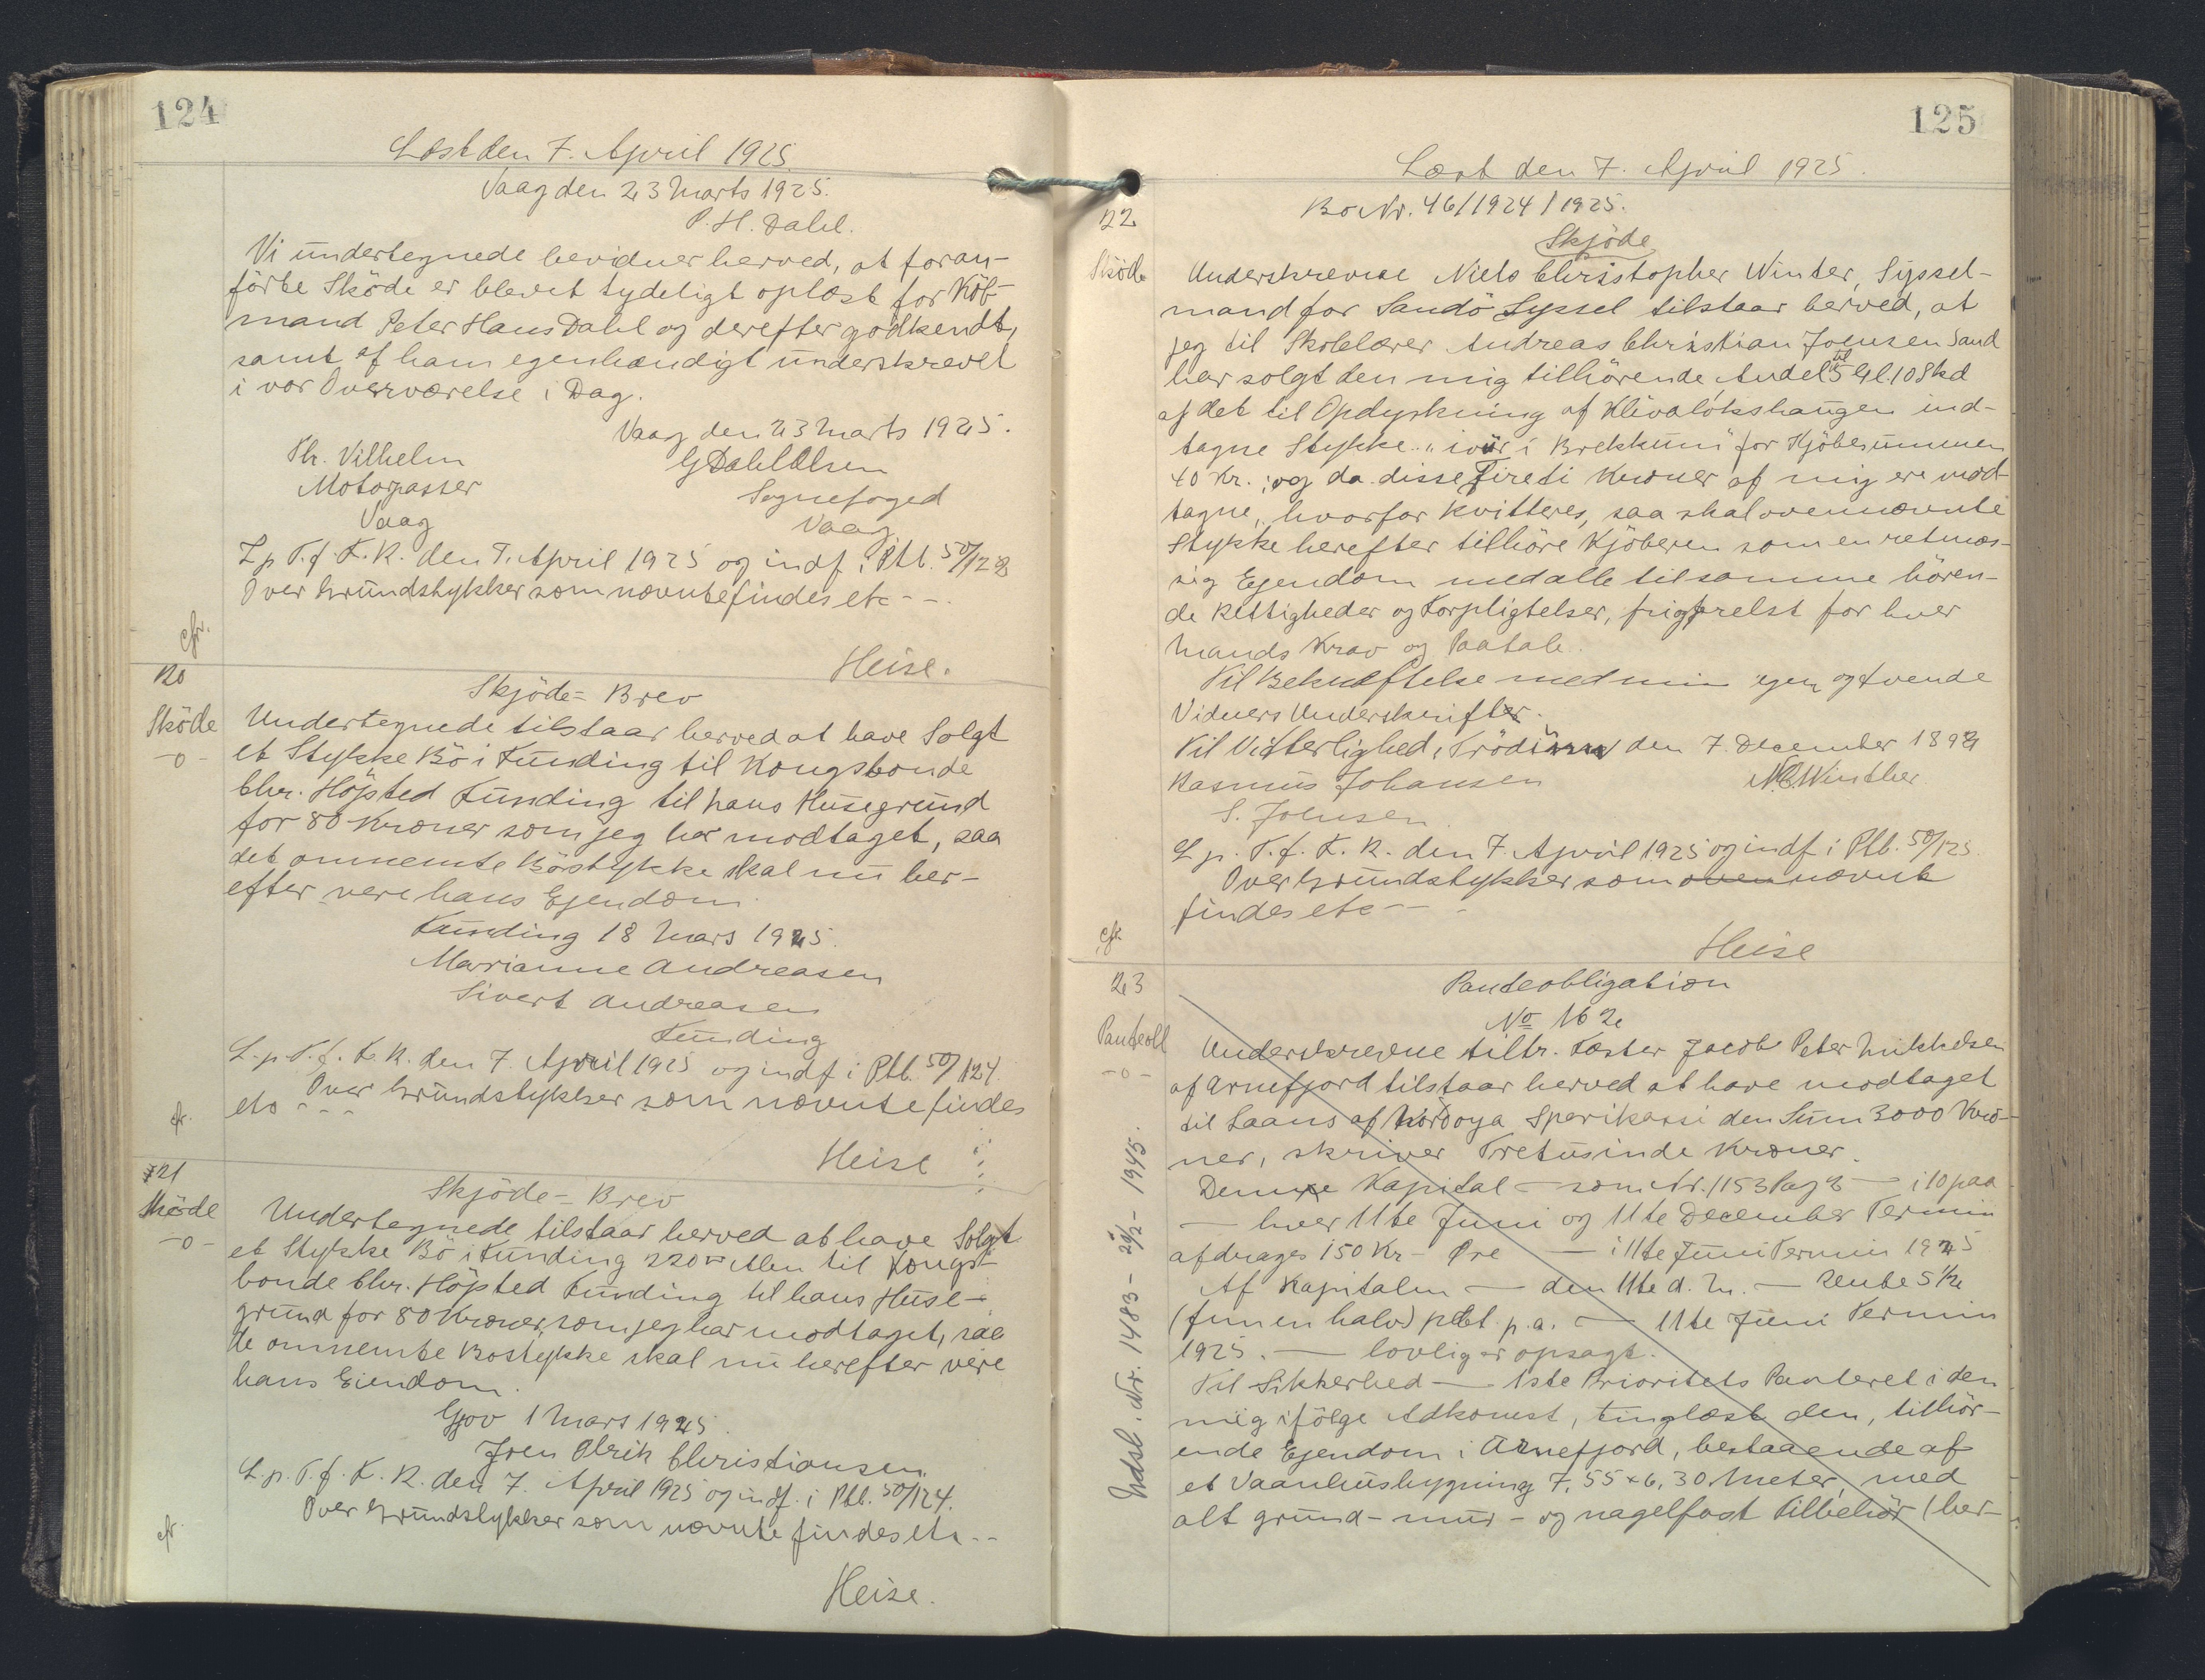 124
Læst den 7. April 1925.
Vaag den 23 Marts 1925.
P. H. Dahl.
Vi undertegnede bevidner herved, at foran-
førte Sköde er blevet tydeligt oplæst for Köb-
mand Peter Hans Dahl og derefter godkendt,
samt af ham egenhændigt underskrevet
i vor Overværelse i Dag.
Vaag den 23 Marts 1925.
Vilhelm
G Dahl Olsen
Motorpasser
Sognefoged
Vaag
Vaag
L. p. T. f. F. R. den 7. April 1925 og indf. i Ptb. 50/123
Over Grundstykker som nævnte findes etc - -
cfr.
Heise.
120
Skjöde- Brev
Sköde
-o-
Undertegnede tilstaar herved at have Solgt
et Stykke Bö i Funding til Kongsbonde
Chr. Höjsted Funding til hans Husegrund
for 80 Kroner som jeg har modtaget, saa
det omnemte Böstykke skal nu her-
efter vere hans Ejendom.
Funding 18 Mars 1925.
Marianne Andreasen
Sivert Andreasen
Funding
L. p. T. f. F. R. den 7. April 1925 og indf i Ptb. 50/124.
Over Grundstykker som nævnte findes
etc - - -
cfr.
Heise
121
Skjöde- Brev
Sköde
-o-
Undertegnede tilstaar herved at have Solgt
et Stykke Bö i Funding 220 □ Alen til Kongs-
bonde Chr. Höjsted Funding til hans Huse-
grund for 80 Kroner, som jeg har modtaget, saa
te omnemte Bostykke skal nu herefter vere
hans Eiendom.
Gjov 1 Mars 1925.
Joen Olrik Christiansen.
L. p. T. f. F. R. den 7. April 1925 og indf. i Ptb. 50/124.
Over Grundstykker som nævnte findes etc - -
cfr.
Heise.
125
Læst den 7. April 1925.
Bo Nr. 46/1924/1925.
22
Skjöde
Sköde
Underskrevne Niels Christopher Winter, Syssel-
mand for Sandö Syssel tilstaar herved, at
jeg til Skolelærer Andreas Christian Joensen Sand
har solgt den mig tilhörende Andel til 5 Gl. 10 Skd
af det til Opdyrkning af Klivalökshaugen ind-
tagne Stykke "ivir i Brekkuni" for Kjöbesummen
40 Kr.; og da disse Fireti Kroner af mig ere mod-
tagne, hvorfor kvitteres, saa skal ovennævnte
Stykke herefter tilhöre Kjöberen som en retmæs-
sig Ejendom med alle til samme hören-
de Rettigheder og Forpligtelser, fri og frelst for hver
Mands Krav og Paatale.
Til Bekræftelse med min egen og tvende
Vidners Underskrifter.
Til Vitterlighed. Trödum den 7. December 1892
Rasmus Johansen
N.C. Winther.
S. Joensen.
L. p. T. f. F. R. den 7. April 1925 og indf. i Ptb. 50/125.
Over Grundstykker som oven nævnte
findes etc - - -
cfr.
Heise
23
Panteobligation
No 162
Panteobl
-o-
Underskrevne tiltr. Fæster Jacob Peter Mikkelsen
af Arnefjord tilstaar herved at have modtaget
til Laans af Nordoya Sparikassi den Sum 3000 Kro-
ner, skriver Tretusinde Kroner.
Denne Kapital - som Nr. 1153 Pag 2 - i 10 paa
- hver 11te Juni og 11te December Termin
afdrages 150 Kr - Øre - i 11te Juni Termin 1925
Af Kapitalen - den 11te d. M. - Rente 5 1/2
(fem en halv) pCt. p. a. - 11te Juni Termin
1925. - lovlig er opsagt.
Til Sikkerhed - 1ste Prioritets Panteret i den
mig ifölge Adkomst, tinglæst den, tilhör-
ende Ejendom i Arnefjord, bestaaende af
et Vaanhusbygning 7,55 x 6,30 Meter, med
alt grund- mur- og nagelfast Tilbehör (her-
Udsl. Nr. 1483 - 20/2 - 1945.